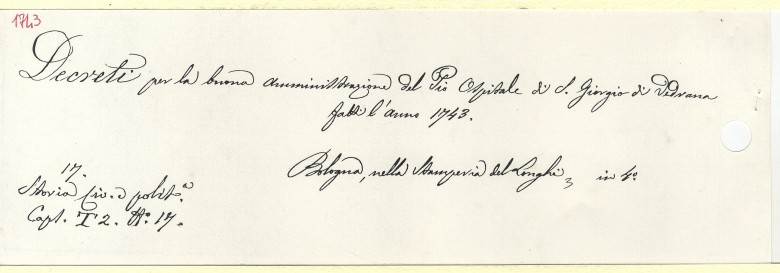 1743
Decreti per la buona amministrazione del Pio Ospitale di S. Giorgio di Vedrana
fatti l'anno 1743.
Bologna, nella Stamperia del Longhi, in 4°
17.
Storia civ. e polit.ª
Capt. T 2. N.° 17.